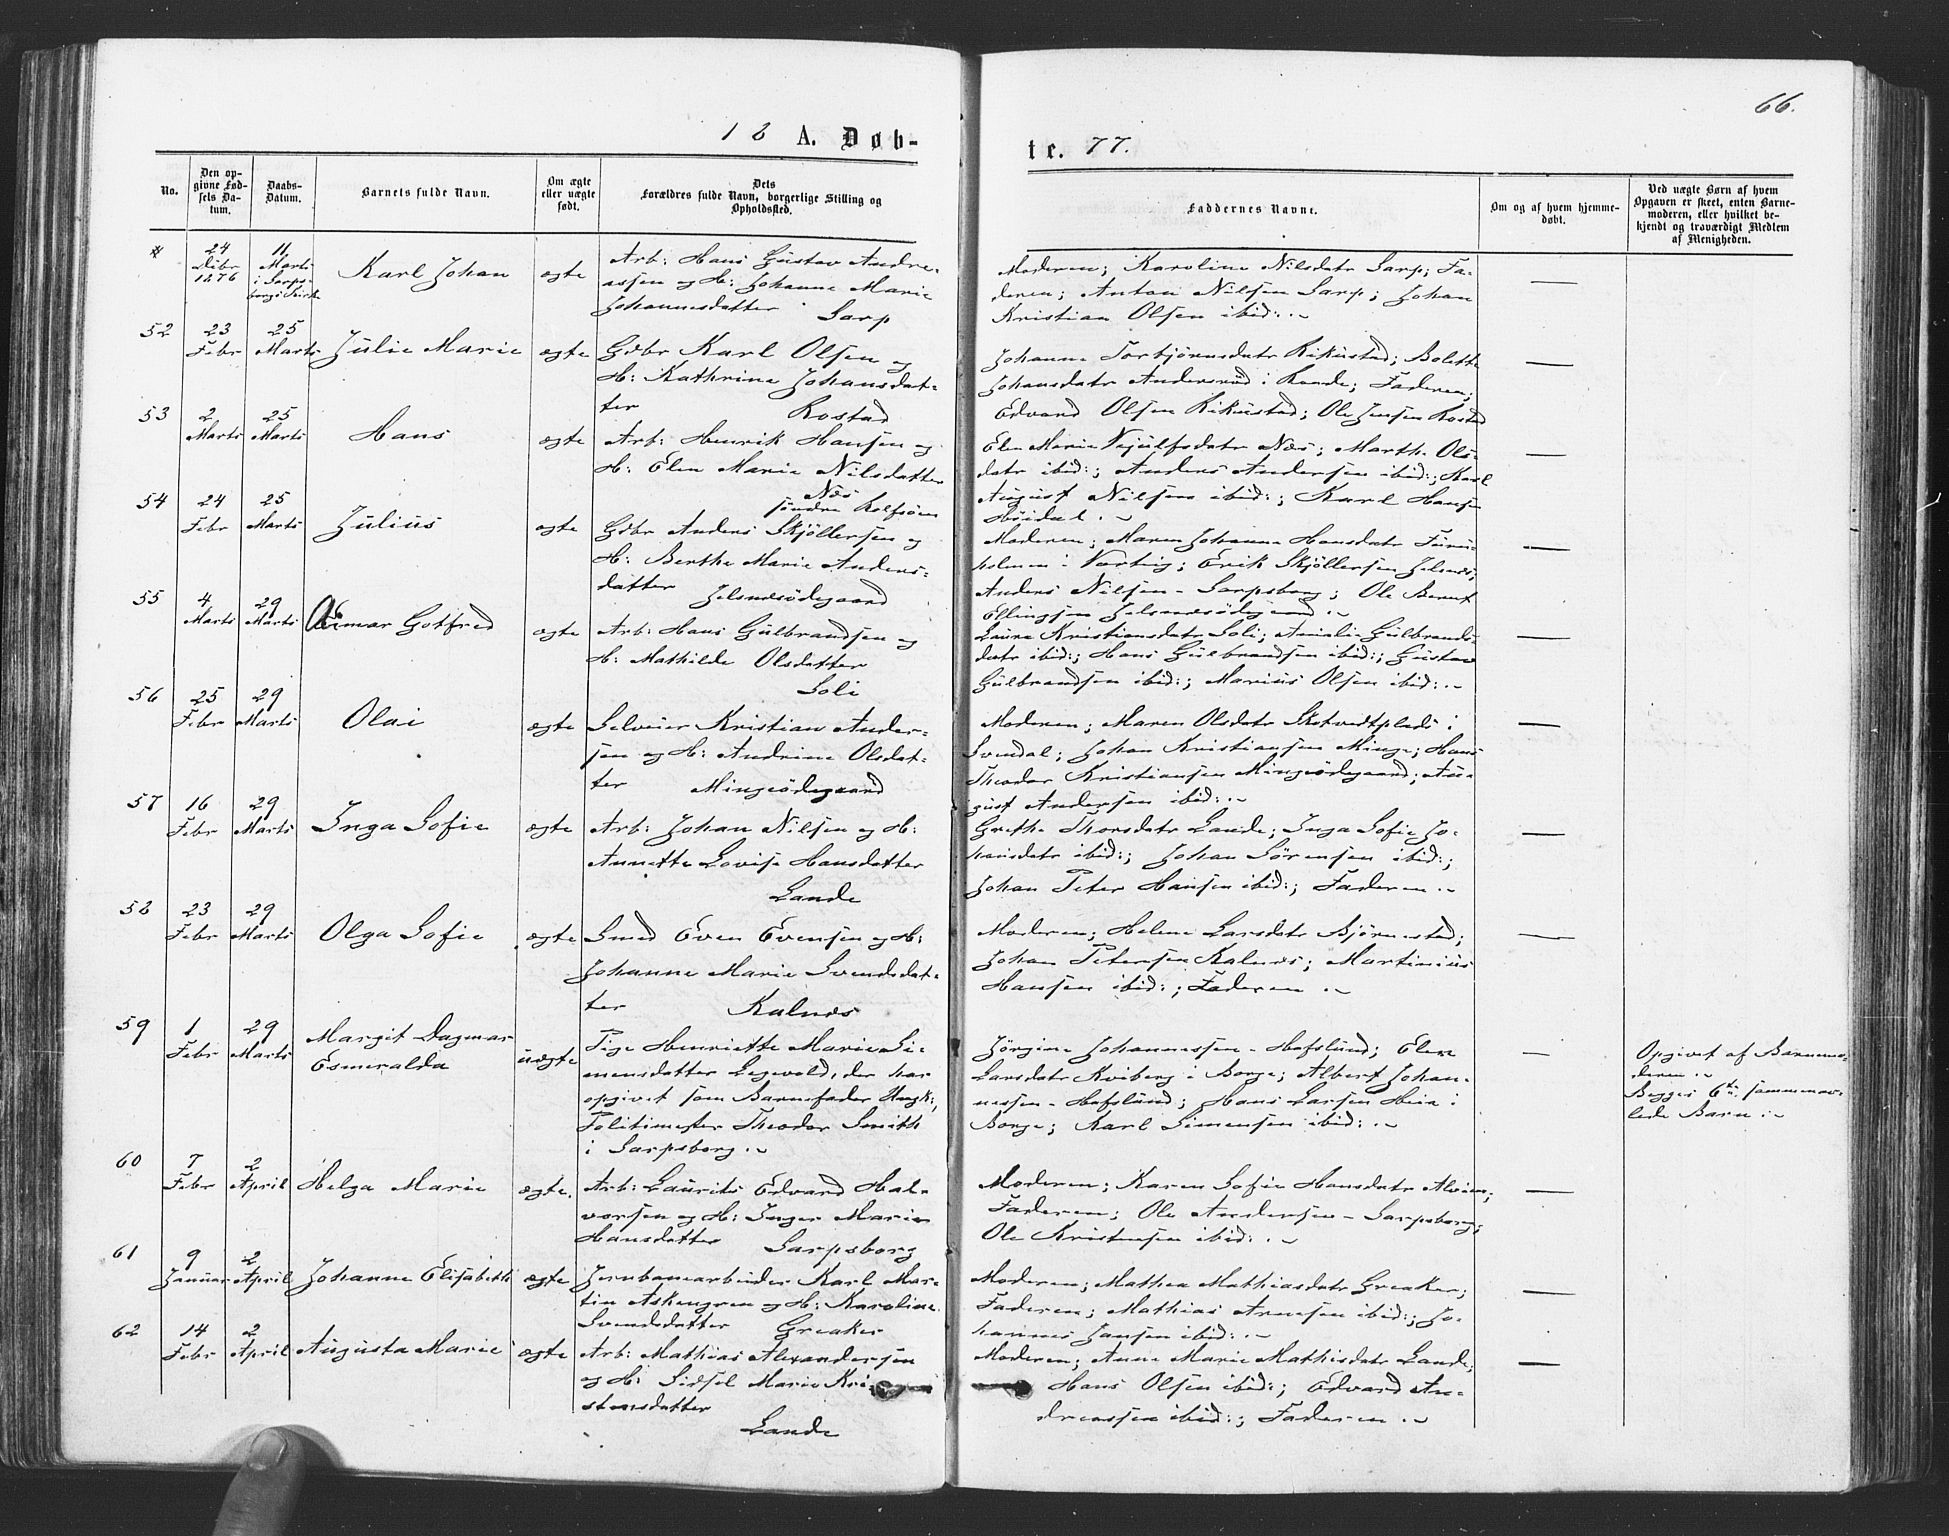 66.
18 A. Døb-
te. 77.
No.
Den op-
givne Fød-
sels Da-
tum.
Daabs-
Datum.
Barnets fulde Navn.
Om ægte
eller uægte
født.
Dets
Forældres fulde Navn, borgerlige Stilling og
Opholdssted.
Faddernes Navne.
Om og af hvem hjemme-
døbt.
Ved uægte Børn af hvem
Opgaven er skeet, enten Barne-
moderen, eller hvilket be-
kjendt og troværdigt Medlem
af Menigheden.
24
Dcbr
1876
11
Marts
i Sarps-
borgs Kirke
Karl Johan
ægte
Arb: Hans Gustav Andre-
assen og H: Johanne Marie
Johannesdatter
Sarp
Moderen; Karoline Nilsdatr Sarp; Fa-
deren; Anton Nilsen Sarp; Johan
Kristian Olsen ibid:
52
23
Febr
25
Marts
Julie Marie
ægte
Gdbr Karl Olsen og
H: Kathrine Johansdat-
ter
Rostad
Johanne Torbjørnsdatr Rikustad; Bolette
Johansdatr Andersrød i Raade; Faderen;
Edvard Olsen Rikustad; Ole Jensen Rostad
53
2
Marts
25
Marts
Hans
ægte
Arb: Henrik Hansen og
H: Elen Marie Nilsdatter
Næs
søndre Rolfsøen
Elen Marie Vejulfsdatr Næs; Marth. Ols-
datr ibid:; Anders Andersen ibid:; Karl
August Nilsen ibid:; Karl Hansen
Höidal
54
24
Febr
25
Marts
Julius
ægte
Gdbr Anders Skjöllersen og
H: Berthe Marie Anders-
datter
Jelsnæsödegaard
Moderen; Maren Johanne Hansdatr Furu-
holmen i Varteig; Erik Skjöllersen Jelsnæs;
Anders Nilsen - Sarpsborg; Ole Bernt
Ellingsen Jelsnæsödegaard
55
4
Marts
29
Marts
Gotfred
ægte
Arb: Hans Gulbrandsen og
H: Mathilde Olsdatter
Soli
Laura Kristiansdatr Soli; Amalie Gulbrands-
datr ibid:; Hans Gulbrandsen ibid:; Gustav
Gulbrandsen ibid:; Marius Olsen ibid:
56
25
Febr
29
Marts
Olai
ægte
Selveier Kristian Ander-
sen og H: Andrine Olsdat-
ter
Mingeödegaard
Moderen; Maren Olsdatr Skotvedtplads i
Svendal; Johan Kristiansen Minge; Hans
Theodor Kristiansen Mingeödegaard; Au-
gust Andersen ibid:
57
16
Febr
29
Marts
Inga Sofie
ægte
Arb: Johan Nilsen og H:
Annette Lovise Hansdatter
Lande
Grethe Thorsdatr Lande; Inga Sofie Jo-
hansdatr ibid:; Johan Sörensen ibid:;
Johan Peter Hansen ibid:; Faderen
58
23
Febr
29
Marts
Olga Sofie
ægte
Smed Even Evensen og H:
Johanne Marie Svendsdat-
ter
Kalnæs
Moderen; Helene Larsdatr Bjørnestad;
Johan Petersen Kalnæs; Martinius
Hansen ibid:; Faderen
59
1
Febr
29
Marts
Margit Dagmar
Esmeralda
uægte
Pige Henriette Marie Si-
mensdatter Legevold, der har
opgivet som Barnefader Ungk:,
Politimester Theodor Smith
i Sarpsborg
Jörgine Johannessen - Hafslund; Elen
Larsdatr Kviberg i Borge; Albert Johan-
nessen - Hafslund; Hans Larsen Heia i
Borge; Karl Simensen ibid:
Opgivet af Barnemo-
deren
Begges 6te sammenav-
lede Barn
60
7
Febr
2
April
Helga Marie
ægte
Arb: Laurits Edvard Hal-
vorsen og H: Inger Marie
Hansdatter
Sarpsborg
Moderen; Karen Sofie Hansdatr Alvim;
Faderen; Ole Andersen - Sarpsborg;
Ole Kristensen ibid:
61
9
Januar
2
April
Johanne Elisabeth
ægte
Jernbanearbeider Karl Mar-
tin Askengren og H: Karoline
Svendsdatter
Greaker
Moderen; Mathea Mathiasdatr Greaker;
Faderen; Mathias Arnesen ibid:; Jo-
hannes Jansen ibid:
62
14
Febr
2
April
Augusta Marie
ægte
Arb: Mathias Alexandersen
og H: Sidsel Marie Kri-
stensdatter
Lande
Moderen; Anne Marie Mathisdatr Lande;
Hans Olsen ibid:; Edvard An-
dreassen ibid:; Faderen